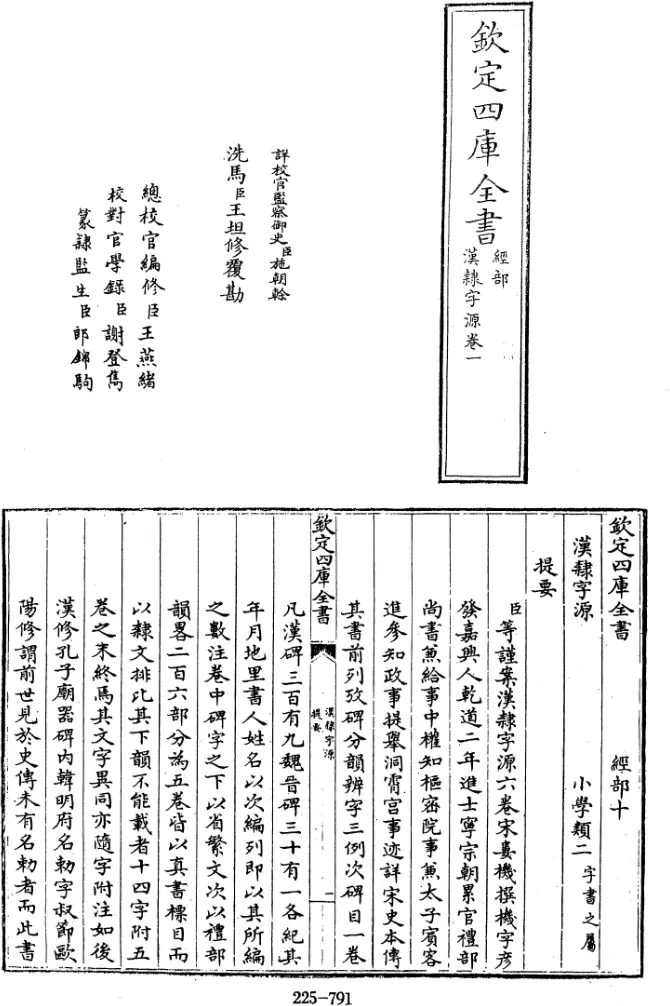 欽定四庫全書
經部
漢隸字源卷一
詳校官監察御史臣施朝幹
洗馬臣王坦修覆勘
總校官編修臣王燕緒
校對官學錄臣謝登雋
篆隸監生臣郎錦駒
欽定四庫全書 經部十
漢隸字源 小學類二 字書之屬
提要
臣等謹案漢隸字源六卷宋婁機撰機字彥
發嘉興人乾道二年進士寧宗朝累官禮部
尚書兼給事中權知樞密院事兼太子賓客
進參知政事提舉洞霄宮事迹詳宋史本傳
其書前列攷碑分韻辨字三例次碑目一卷
欽定四庫全書
漢隸字源
提要
一
凡漢碑三百有九魏晉碑三十有一各紀其
年月地里書人姓名以次編列即以其所編
之數注卷中碑字之下以省繁文次以禮部
韻畧二百六部分為五卷皆以真書標目而
以隸文排比其下韻不能載者十四字附五
卷之末終焉其文字異同亦隨字附注如後
漢修孔子廟器碑内韓明府名勅字叔節歐
陽修謂前世見於史傳未有名勅者而此書
225-791